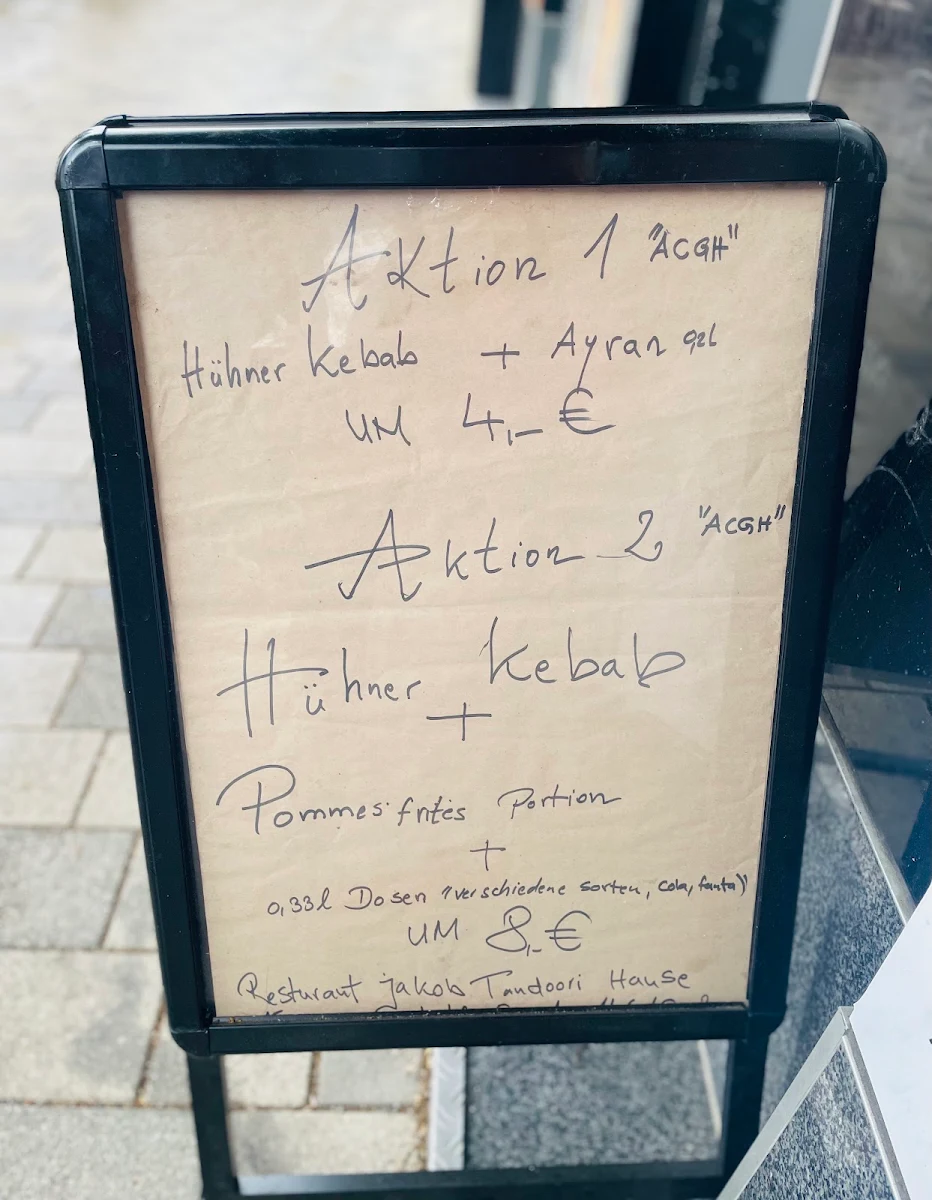 Aktion 1 "ACGH"
Hühner Kebab + Ayran 0,2l
UM 4,- €
Aktion 2 "ACGH"
Hühner Kebab
+
Pommes frites Portion
+
0,33l Dosen "verschiedene sorten, Cola, fanta)"
UM 8,- €
Resturant jakob Tandoori Hause